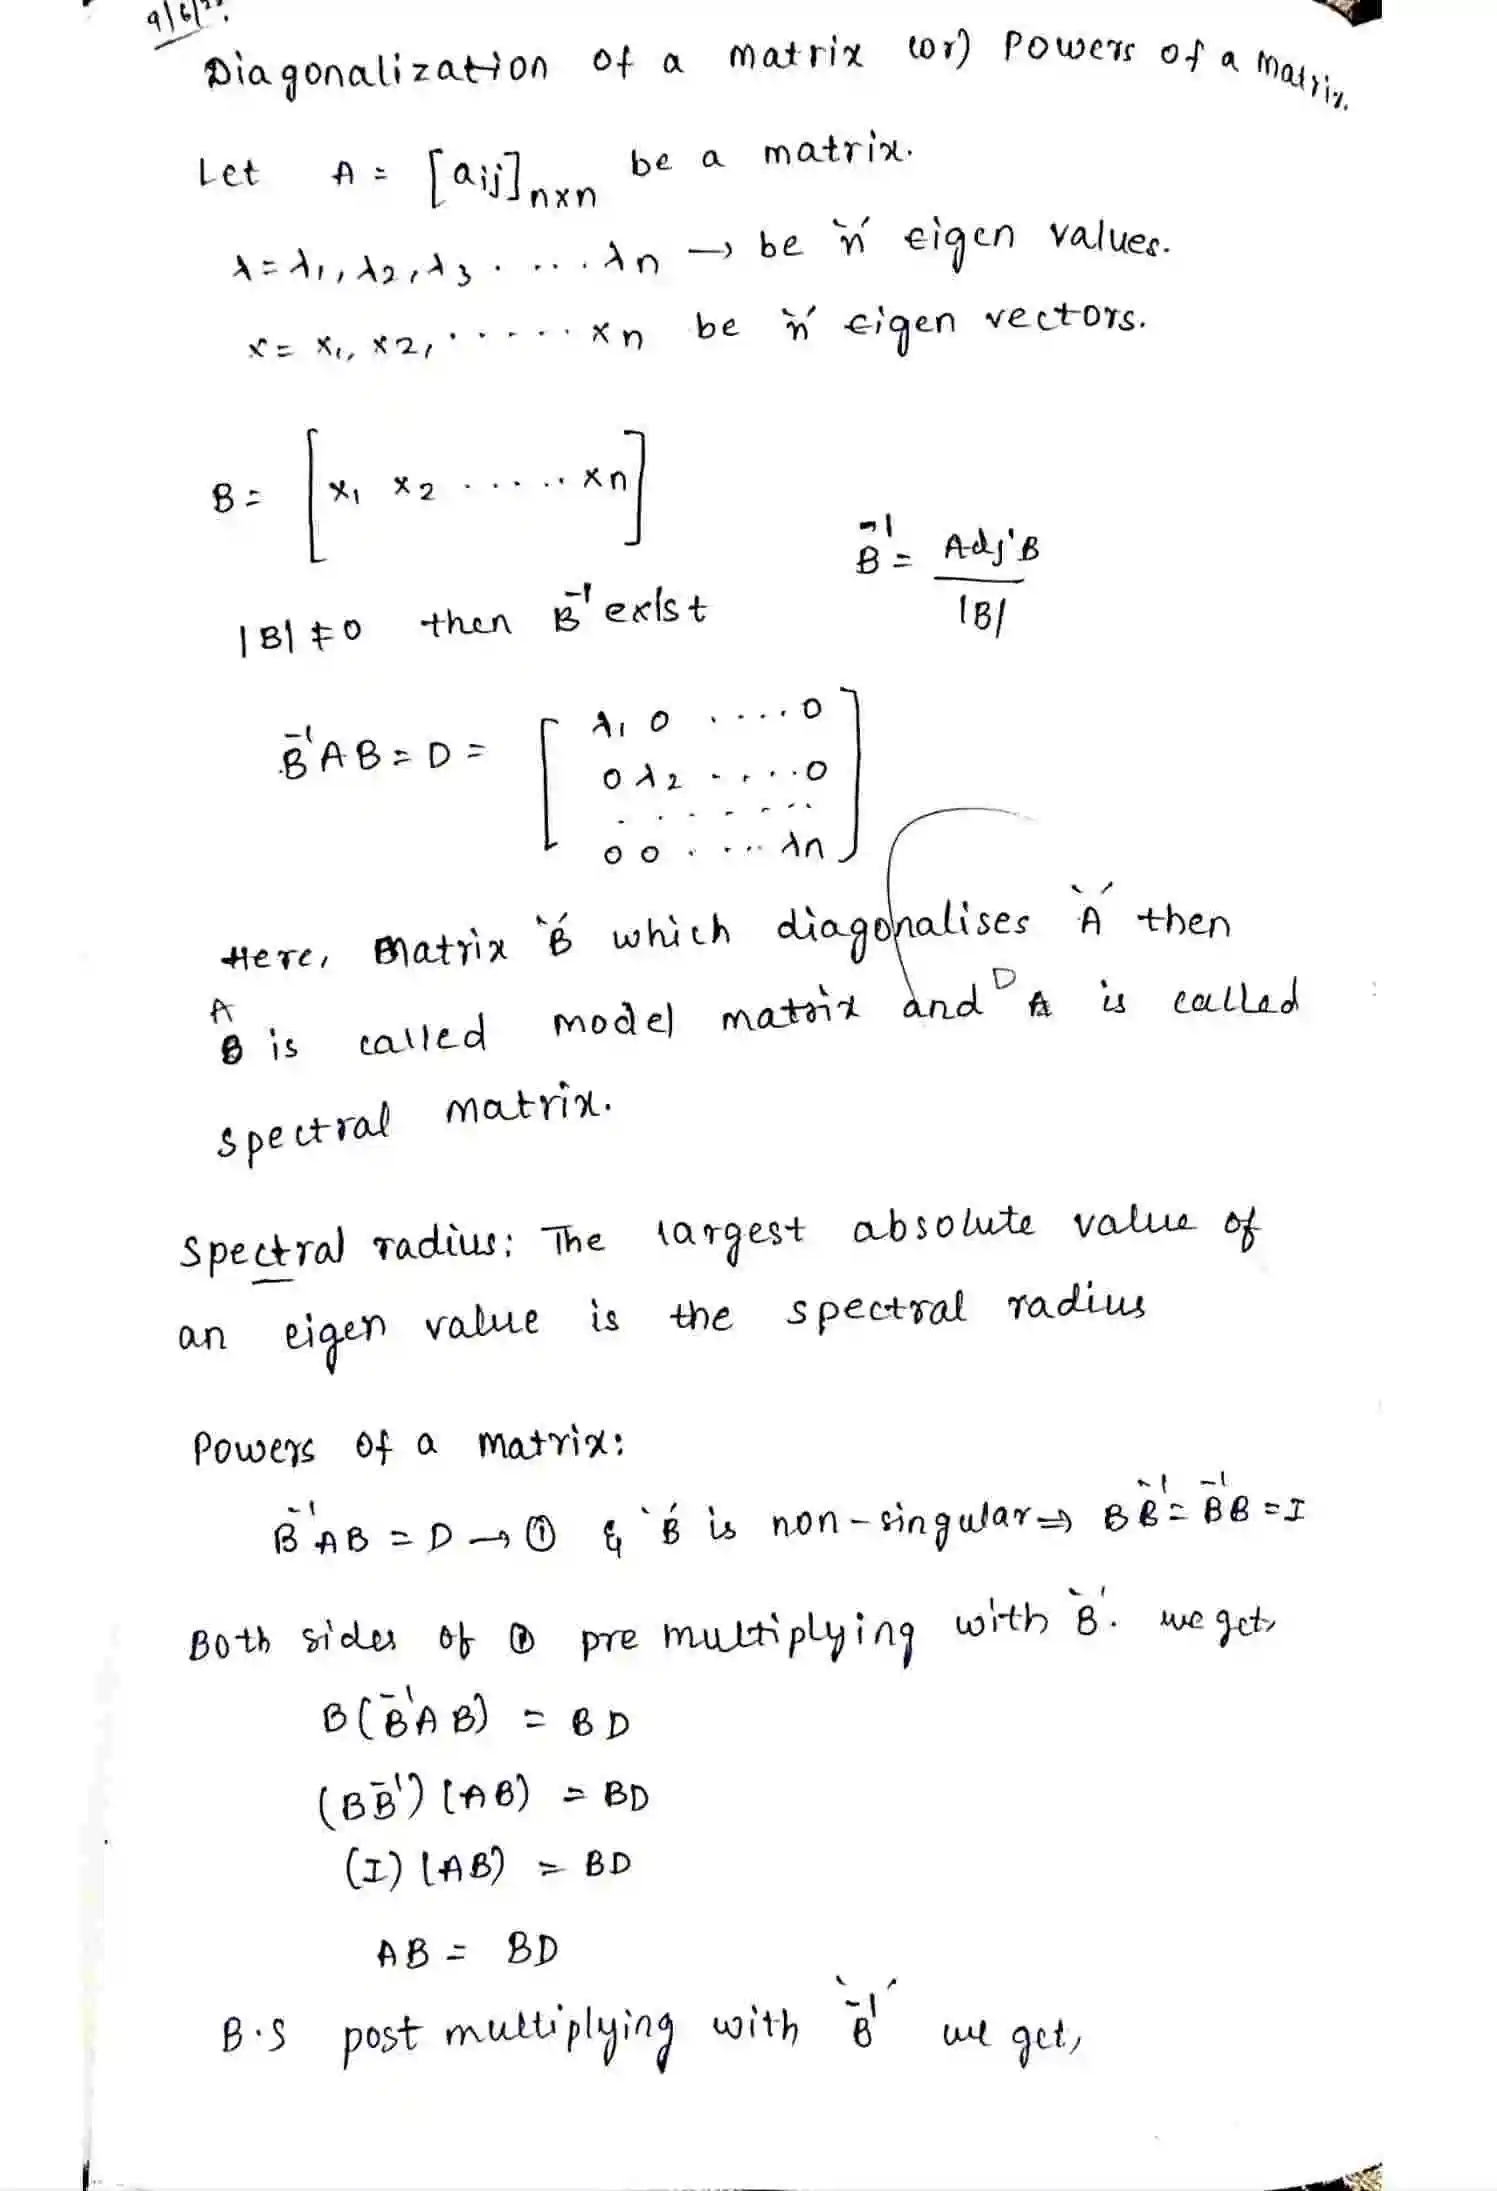 Diagonalization of a matrix (or) Powers of a matrix.
Let A = [aij]n×n be a matrix.
λ = λ1, λ2, λ3 . ... λn → be 'n' eigen values.
x = x1, x2, ...... xn be 'n' eigen vectors.
B = [x1 x2 ..... xn]
B⁻¹ = Adj'B / |B|
|B| ≠ 0 then B⁻¹ exist
B⁻¹AB = D = [ λ1 0 .... 0
0 λ2 .... 0
. . . . . . . .
0 0 . ... λn ]
Here, Matrix 'B' which diagonalises 'A' then
A
B is called model matrix and D A is called
spectral matrix.
Spectral radius: The largest absolute value of
an eigen value is the spectral radius
Powers of a matrix:
B⁻¹AB = D → ① & 'B' is non-singular ⇒ BB⁻¹ = B⁻¹B = I
Both sides of ① pre multiplying with 'B'. we get,
B(B⁻¹AB) = BD
(BB⁻¹)(AB) = BD
(I)(AB) = BD
AB = BD
B.S post multiplying with 'B⁻¹' we get,